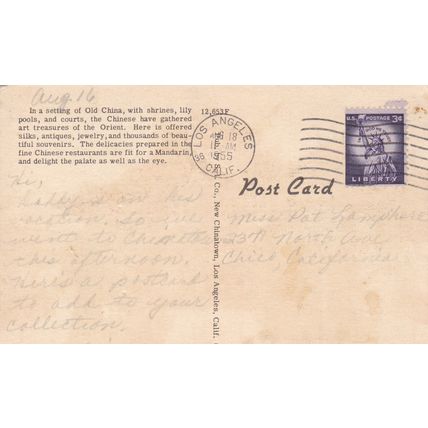 Aug. 16
In a setting of Old China, with shrines, lily
pools, and courts, the Chinese have gathered
art treasures of the Orient. Here is offered
silks, antiques, jewelry, and thousands of beau-
tiful souvenirs. The delicacies prepared in the
fine Chinese restaurants are fit for a Mandarin,
and delight the palate as well as the eye.
12,653F
LOS ANGELES
18
AM
1955
CALIF.
U.S. POSTAGE 3¢
LIBERTY
Post Card
Co., New Chinatown, Los Angeles, Calif.
Hi,
on his
went to
this afternoon.
Here's a postcard
to add to your
collection.
Miss Pat
North Ave
Chico, California